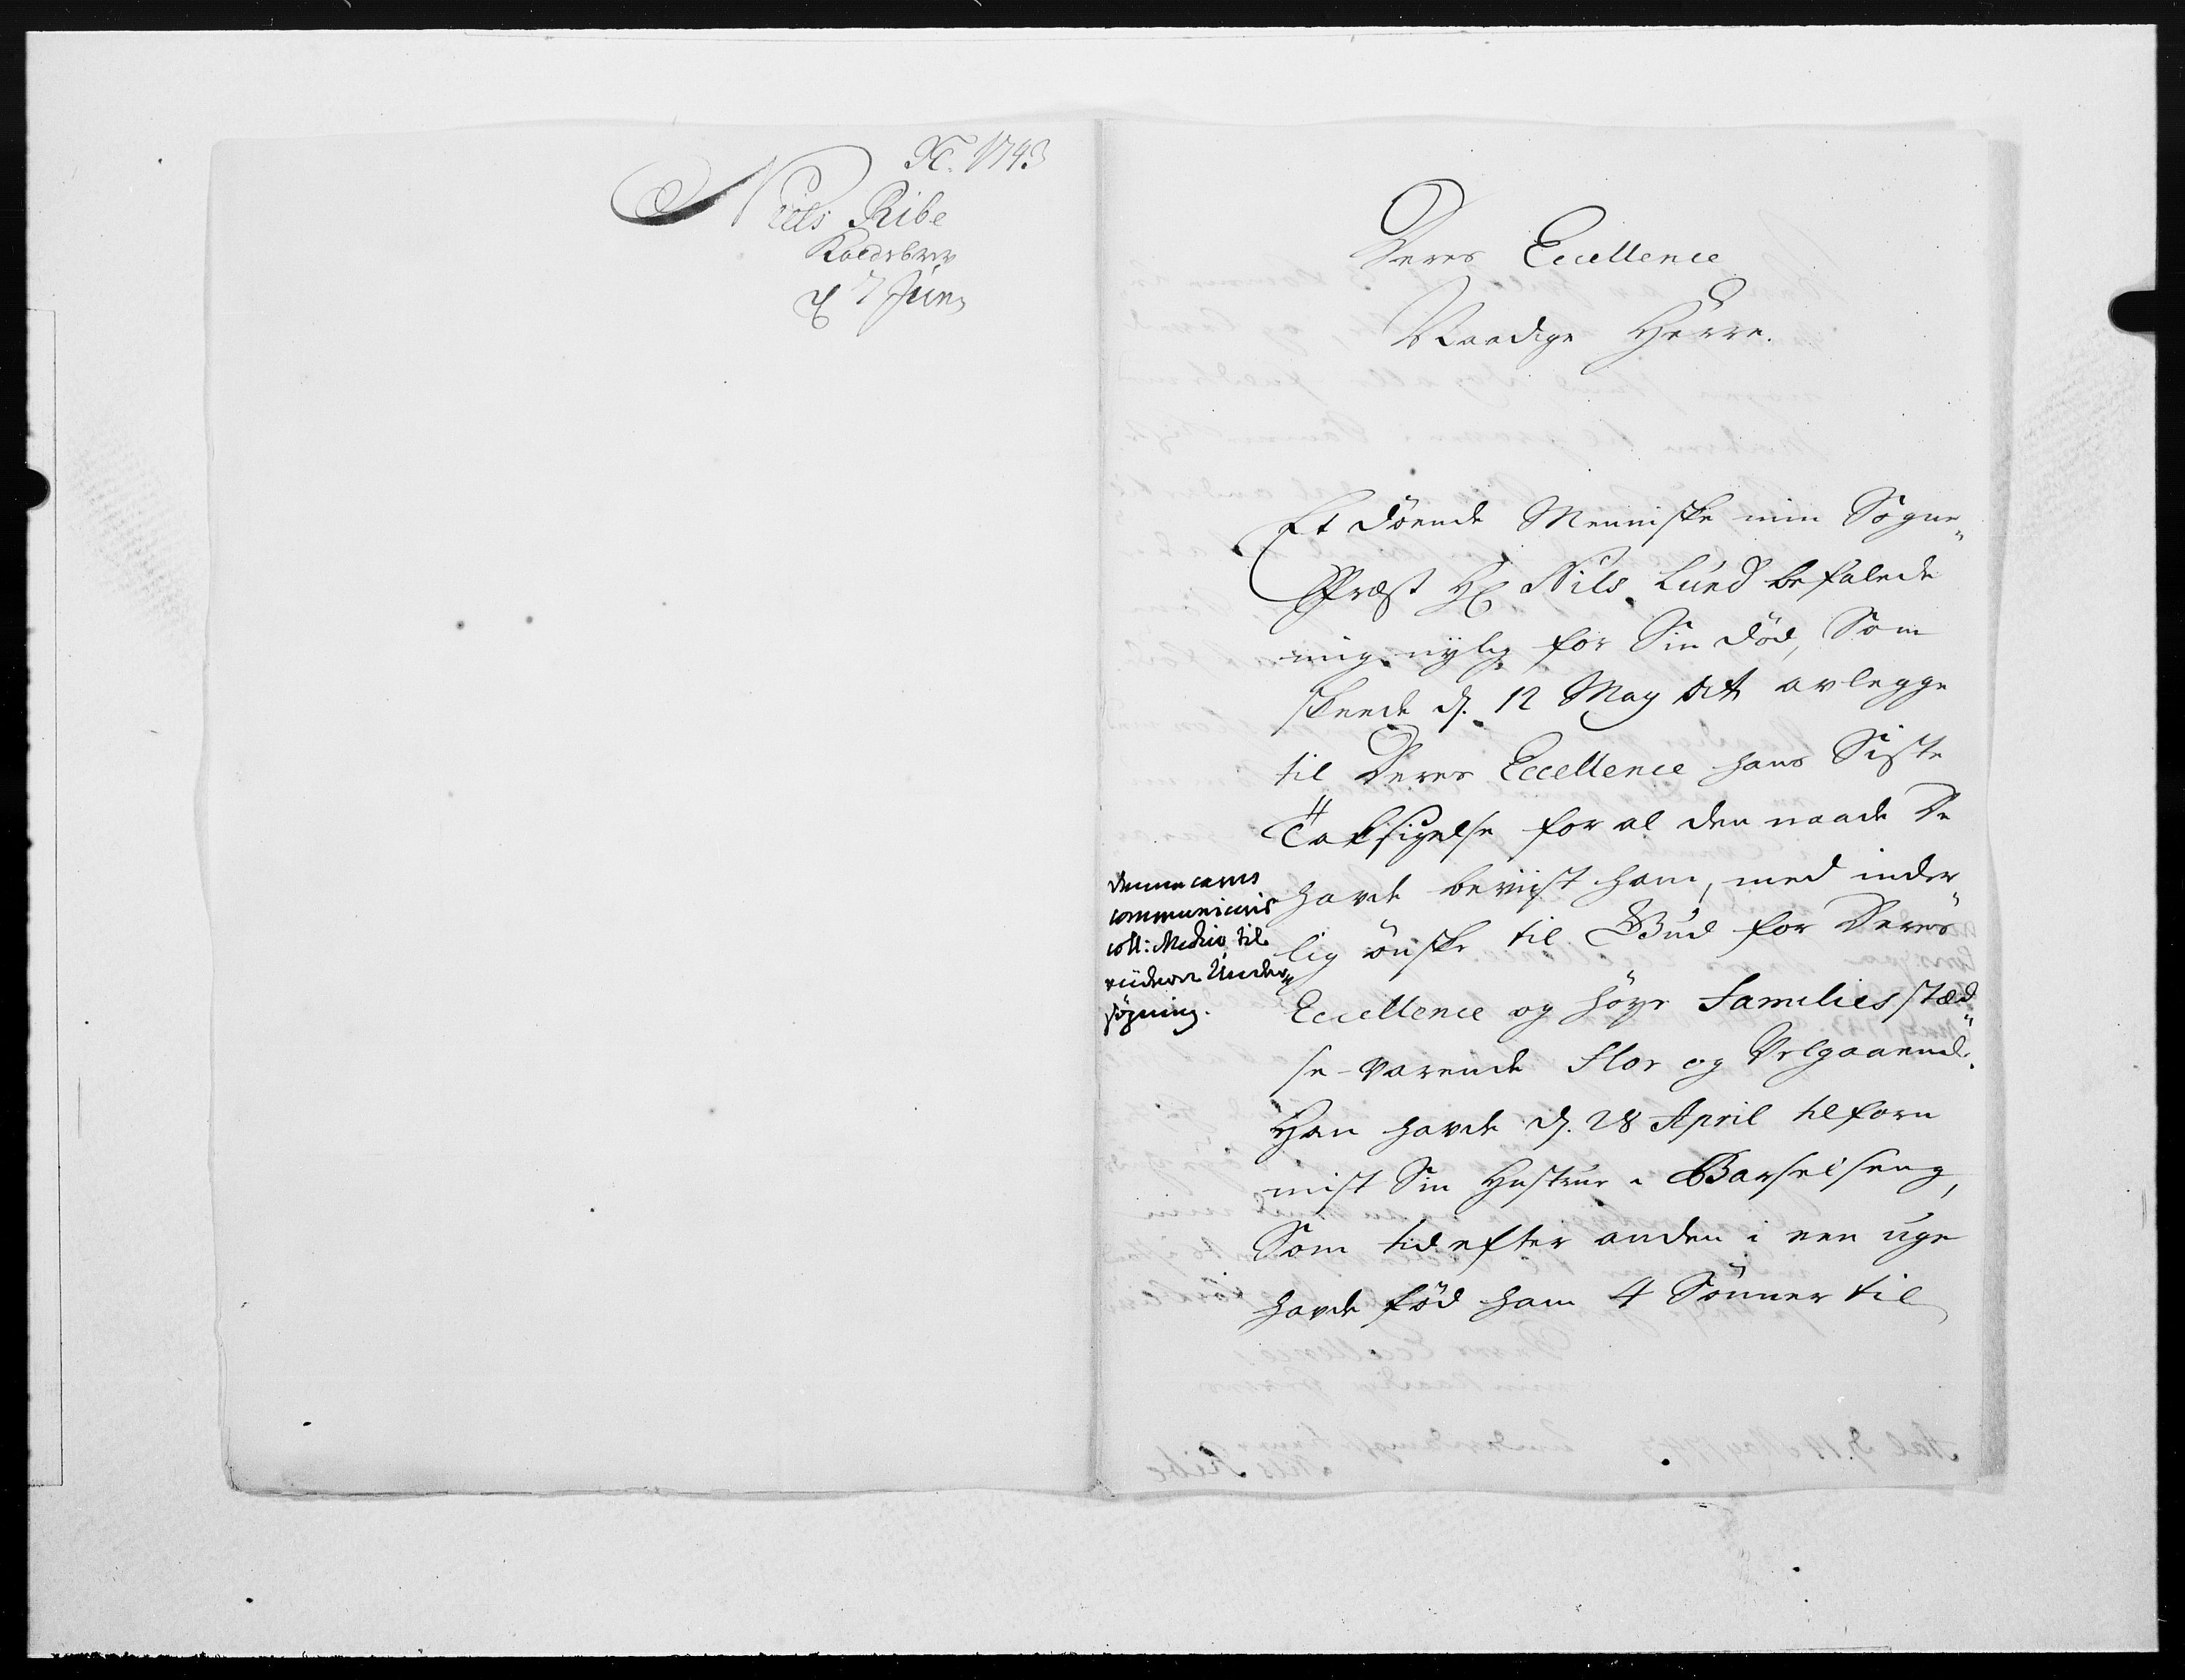 1743
Niels Ribe
7 Juny
Deres Eccellence
Naadige Herre.
Et döende Menniske min Sogne„
Præst Hr Nils Lund befalede
mig nylig for Sin död, Som
skeede d. 12 May at avlegge
til Deres Eccellence hans Siste
Taksigelse for al den naade De
havde beviist ham, med inder„
lig önske til Gud for Deres
Eccellence og höye Families stæd„
se-varende Flor og Velgaaende.
Han havde d. 28 April tilforn
mist Sin Hustrue i Barselseng,
Som tid efter anden i een uge
havde föd ham 4 Sönner til
denne casus
communiceris
coll: Medico til
viidere Under„
søgning.